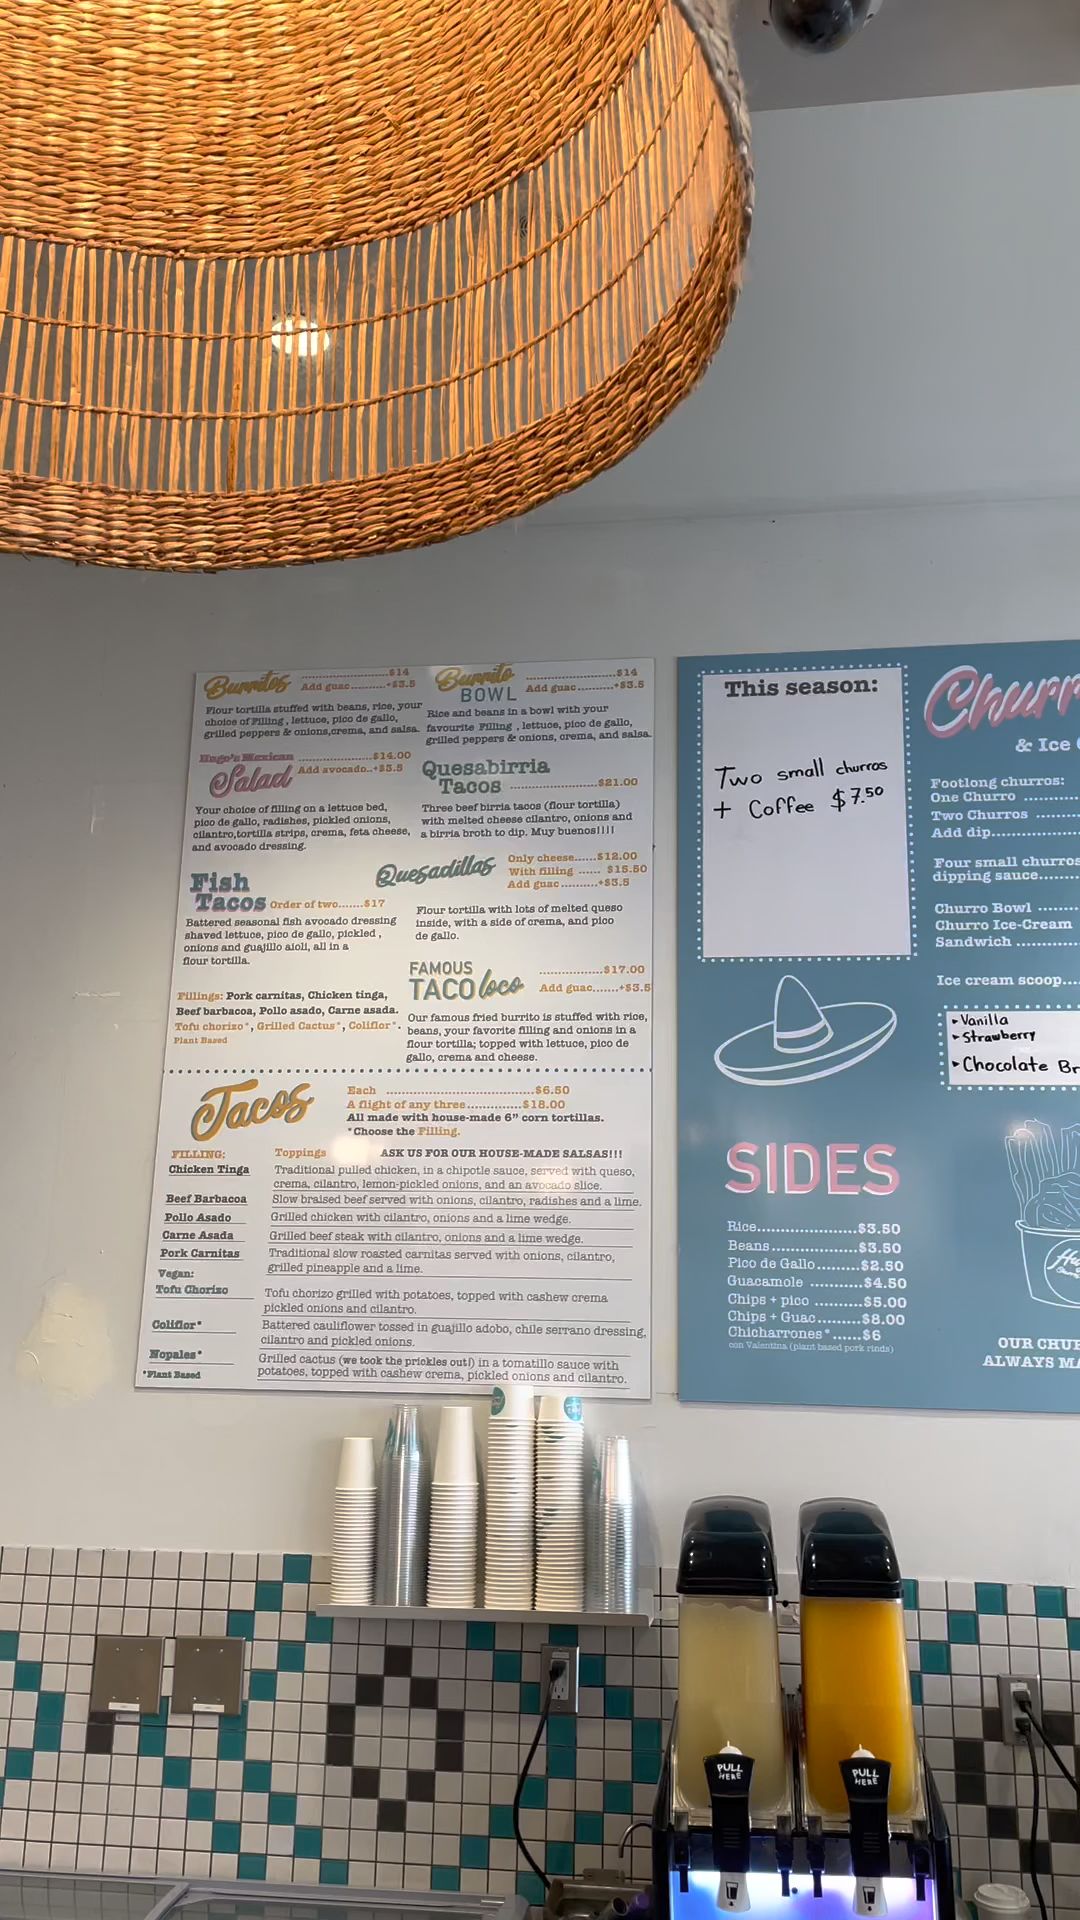 Burritos
..................$14
Add guac..........+$3.5
Flour tortilla stuffed with beans, rice, your
choice of Filling , lettuce, pico de gallo,
grilled peppers & onions,crema, and salsa.
Burrito
BOWL
..................$14
Add guac..........+$3.5
Rice and beans in a bowl with your
favourite Filling , lettuce, pico de gallo,
grilled peppers & onions, crema, and salsa.
Hugo's Mexican
Salad
..................$14.00
Add avocado..+$3.5
Your choice of filling on a lettuce bed,
pico de gallo, radishes, pickled onions,
cilantro,tortilla strips, crema, feta cheese,
and avocado dressing.
Quesabirria
Tacos ..................$21.00
Three beef birria tacos (flour tortilla)
with melted cheese cilantro, onions and
a birria broth to dip. Muy buenos!!!!
Fish
Tacos Order of two.......$17
Battered seasonal fish avocado dressing
shaved lettuce, pico de gallo, pickled ,
onions and guajillo aioli, all in a
flour tortilla.
Quesadillas
Only cheese......$12.00
With filling ...... $15.50
Add guac..........+$3.5
Flour tortilla with lots of melted queso
inside, with a side of crema, and pico
de gallo.
Fillings: Pork carnitas, Chicken tinga,
Beef barbacoa, Pollo asado, Carne asada.
Tofu chorizo*, Grilled Cactus*, Coliflor*.
Plant Based
FAMOUS
TACO loco
..................$17.00
Add guac.......+$3.5
Our famous fried burrito is stuffed with rice,
beans, your favorite filling and onions in a
flour tortilla; topped with lettuce, pico de
gallo, crema and cheese.
Tacos
Each ........................................$6.50
A flight of any three..............$18.00
All made with house-made 6" corn tortillas.
*Choose the Filling.
FILLING:
Toppings
ASK US FOR OUR HOUSE-MADE SALSAS!!!
Chicken Tinga
Traditional pulled chicken, in a chipotle sauce, served with queso,
crema, cilantro, lemon-pickled onions, and an avocado slice.
Beef Barbacoa
Slow braised beef served with onions, cilantro, radishes and a lime.
Pollo Asado
Grilled chicken with cilantro, onions and a lime wedge.
Carne Asada
Grilled beef steak with cilantro, onions and a lime wedge.
Pork Carnitas
Traditional slow roasted carnitas served with onions, cilantro,
grilled pineapple and a lime.
Vegan:
Tofu Chorizo
Tofu chorizo grilled with potatoes, topped with cashew crema
pickled onions and cilantro.
Coliflor*
Battered cauliflower tossed in guajillo adobo, chile serrano dressing,
cilantro and pickled onions.
Nopales*
Grilled cactus (we took the prickles out!) in a tomatillo sauce with
potatoes, topped with cashew crema, pickled onions and cilantro.
*Plant Based
This season:
Two small churros
+ Coffee $7.50
SIDES
Rice......................$3.50
Beans...................$3.50
Pico de Gallo.........$2.50
Guacamole ..........$4.50
Chips + pico ..........$5.00
Chips + Guac.........$8.00
Chicharrones*......$6
con Valentina (plant based pork rinds)
Churr
& Ice
Footlong churros:
One Churro ..........
Two Churros ........
Add dip................
Four small churros
dipping sauce.......
Churro Bowl ........
Churro Ice-Cream
Sandwich ............
Ice cream scoop....
▸Vanilla
▸Strawberry
▸Chocolate Br
OUR CHU
ALWAYS MA
PULL
HERE
PULL
HERE